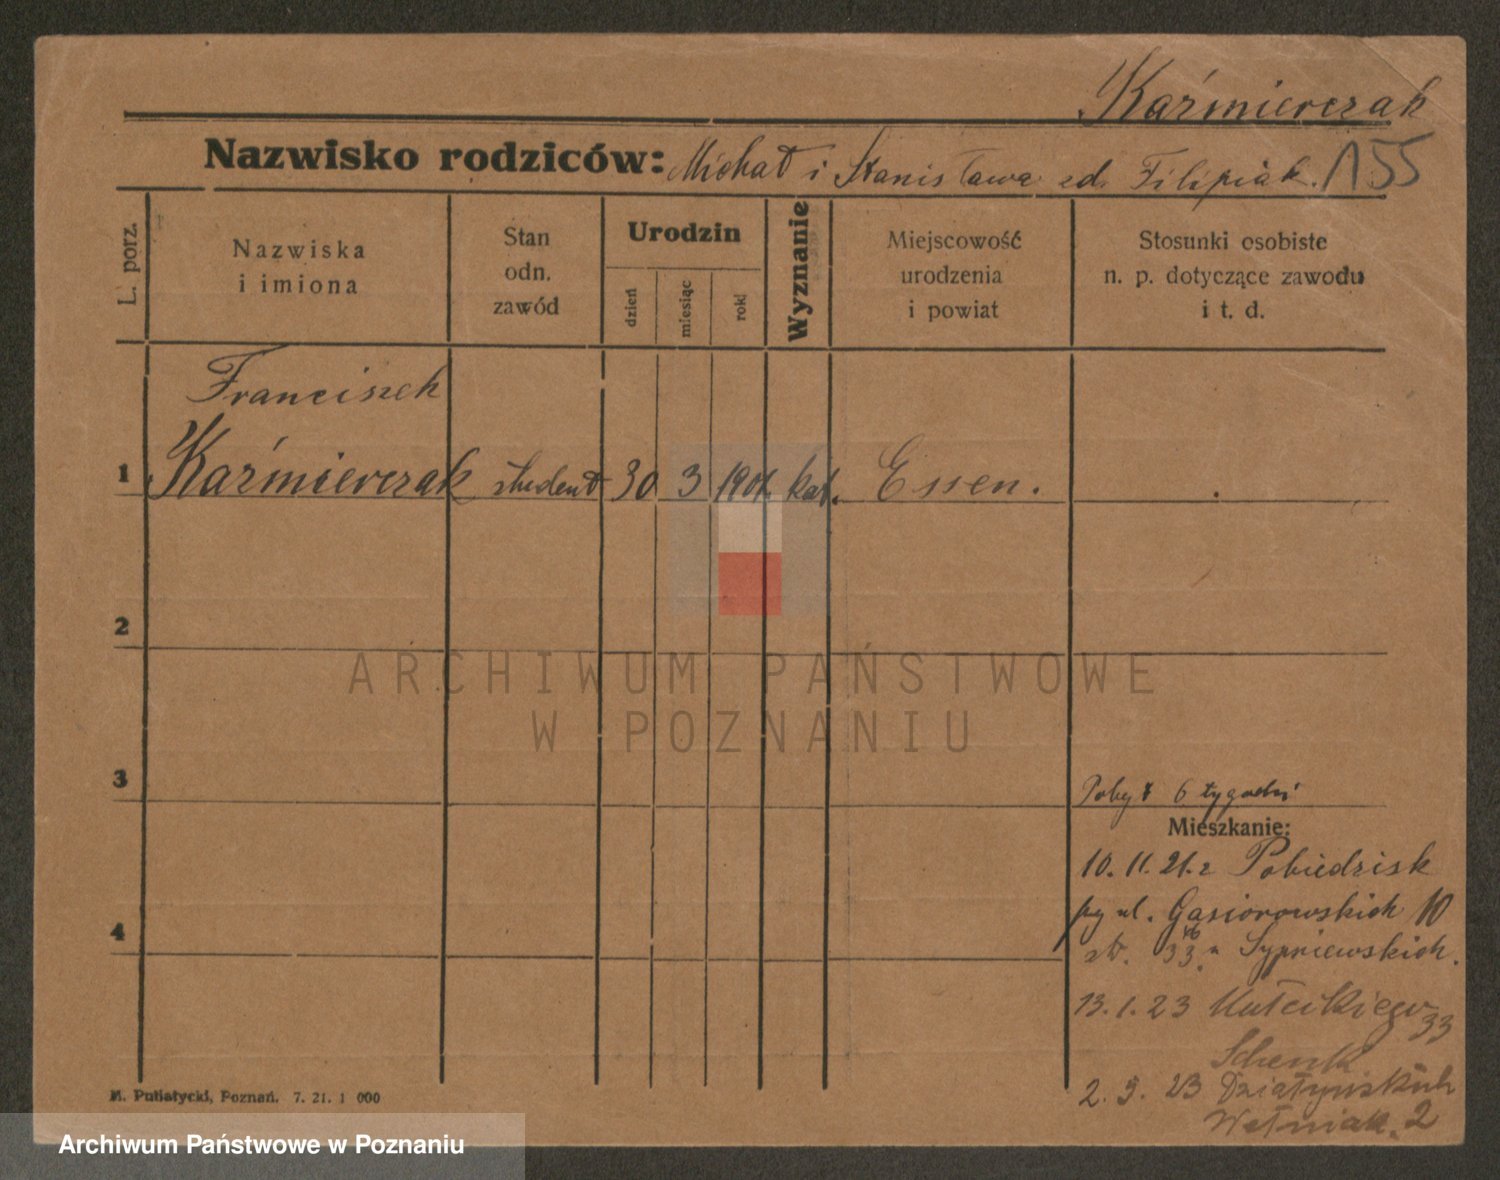 Kaźmierczak
Nazwisko rodziców: Michał i Stanisława zd. Filipiak. 155
L. porz.
Nazwiska
i imiona
Stan
odn.
zawód
Urodzin
dzień
miesiąc
rok
Wyznanie
Miejscowość
urodzenia
i powiat
Stosunki osobiste
n. p. dotyczące zawodu
i t. d.
Franciszek
1 Kaźmierczak student 30 3 1901. kat. Essen.
2
ARCHIWUM PAŃSTWOWE
W POZNANIU
3
Pobyt 6 tygodni
Mieszkanie:
10. 11. 21. z Pobiedzisk
ul. Gąsiorowskich 10
4
33. u Sypniewskich.
13. 1. 23 33
Schenk
2. 5. 23 Działyńskich
Wełniak. 2
M. Putiatycki, Poznań. 7. 21. 1 000
Archiwum Państwowe w Poznaniu